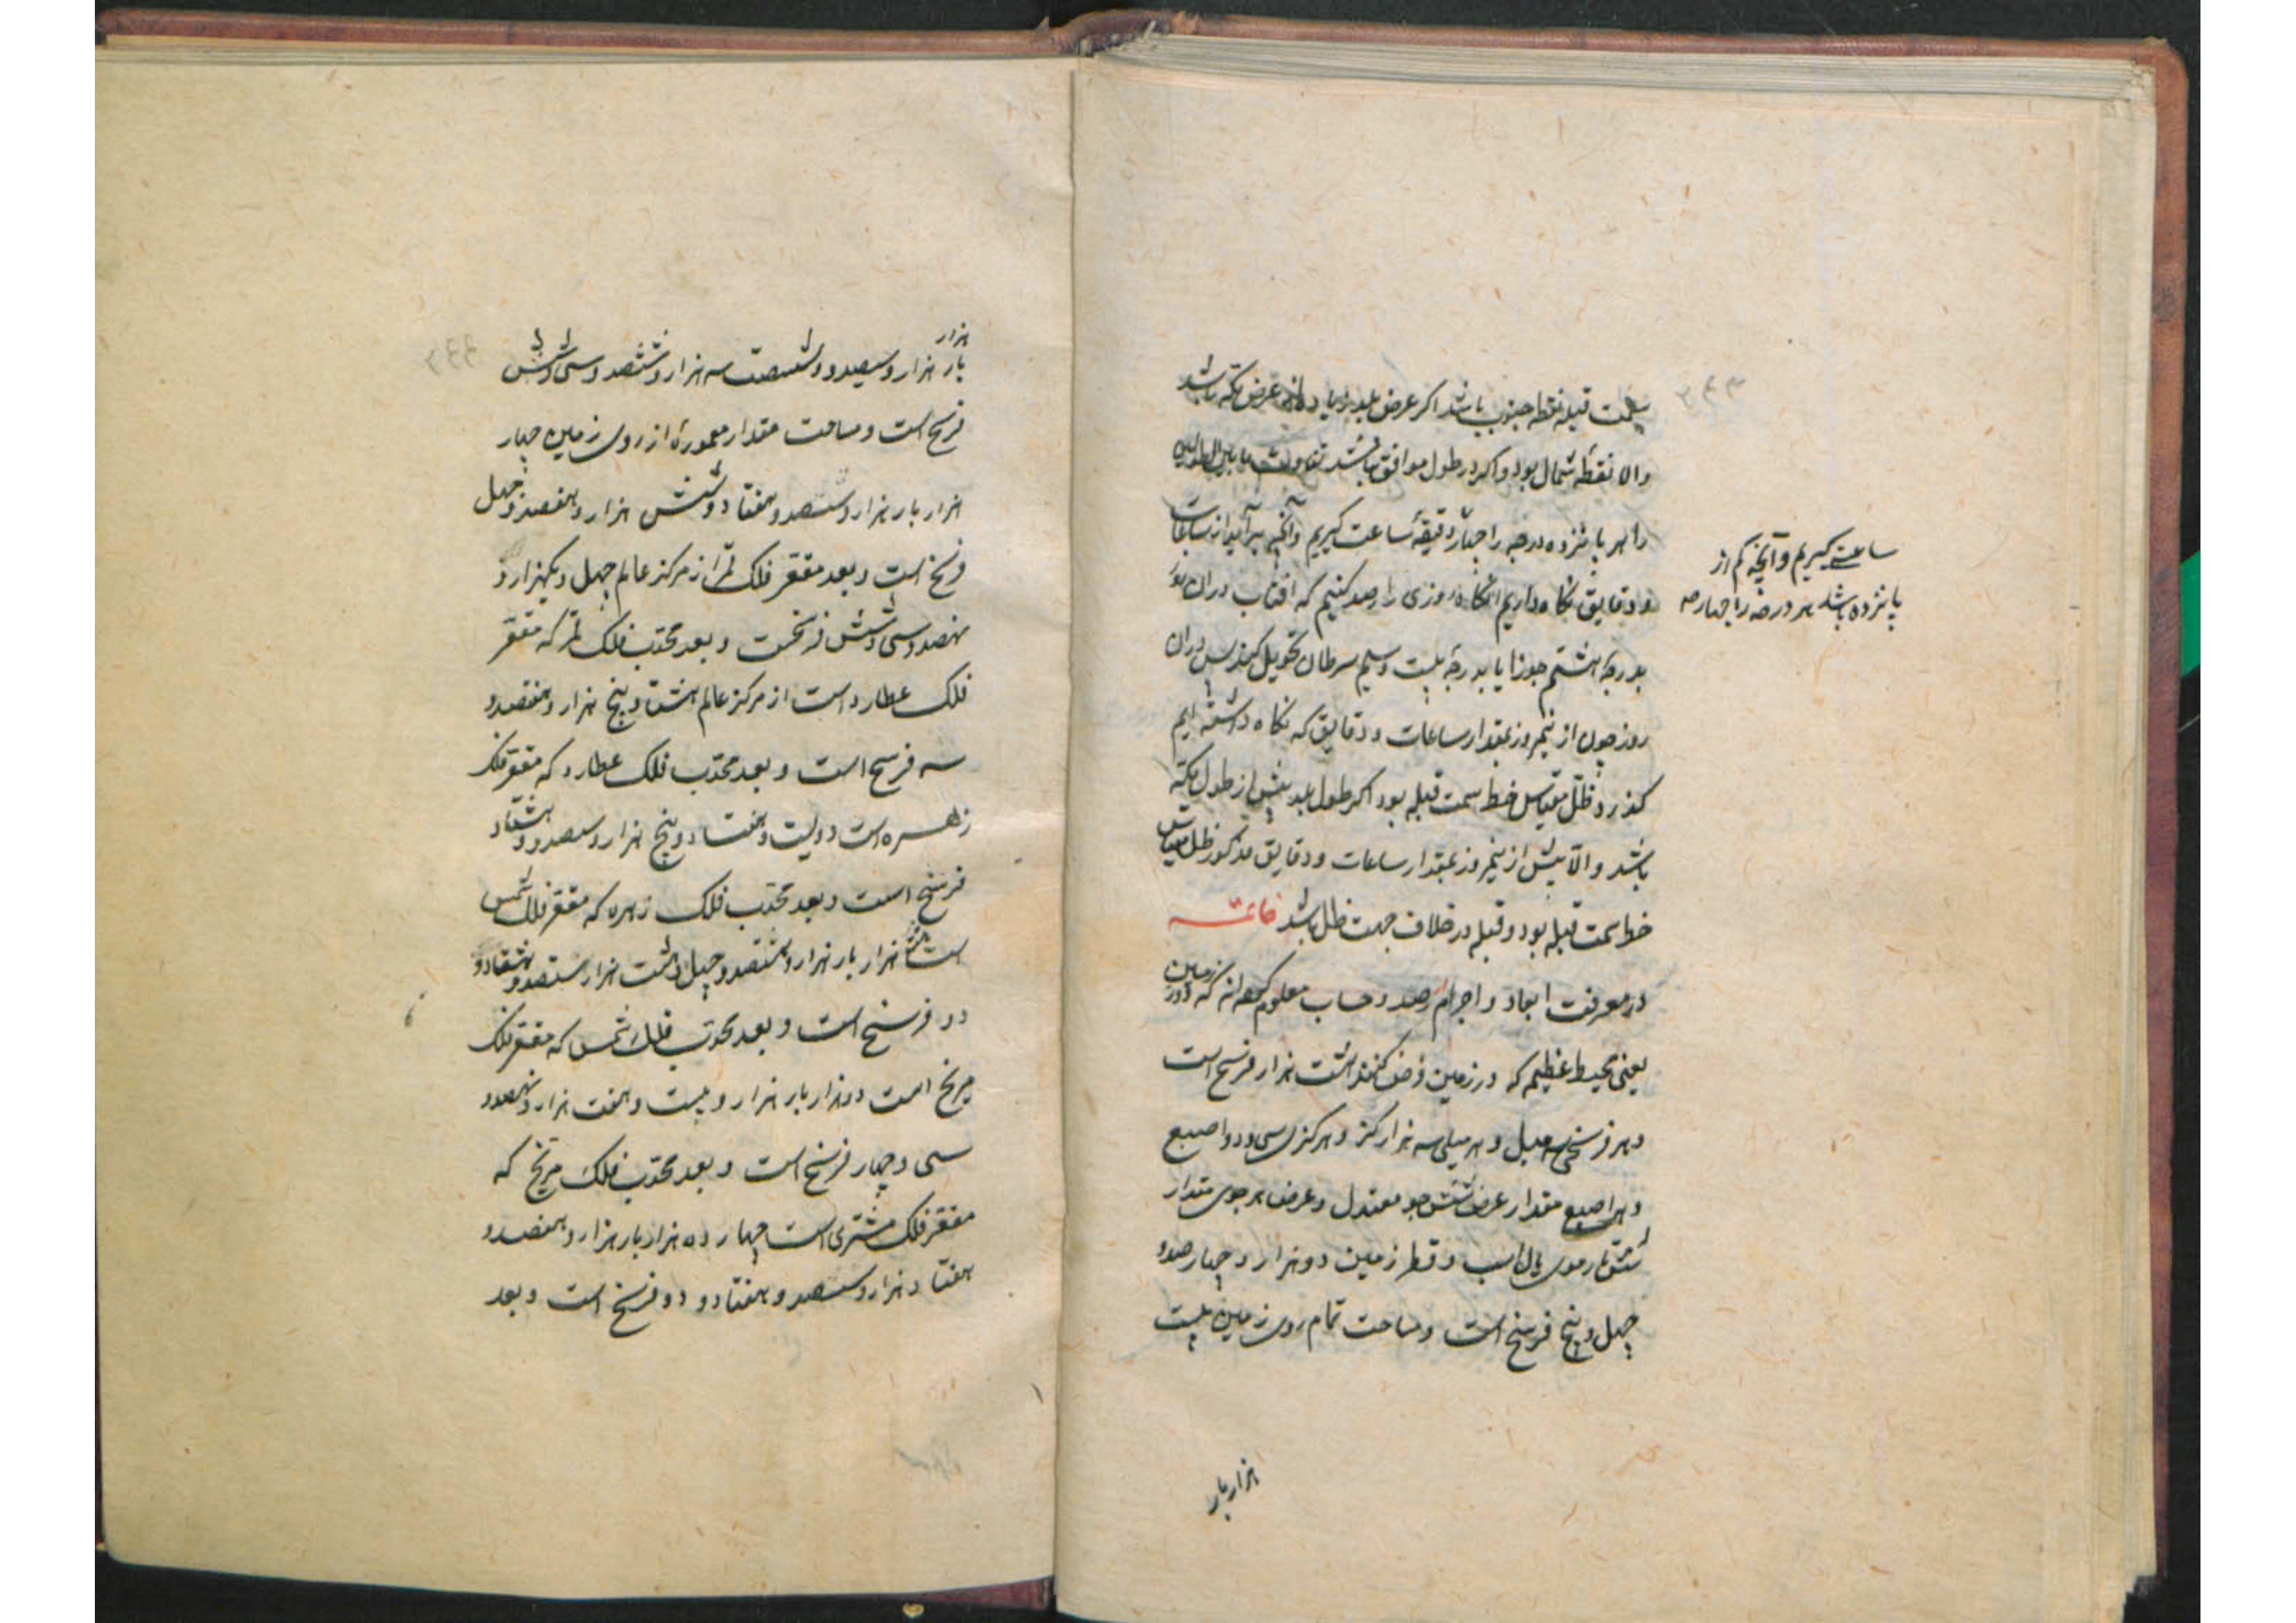 سمت قبله نقطه جنوب باشد اگر عرض بلد زیاده از عرض مکه باشد
والا نقطه شمال بود و اگر در طول موافق باشد تفاوت ما بین الطولین
را هر پانزده درجه را چهار دقیقه ساعت گیریم و آنچه برآید از ساعات
و دقایق نگاه داریم آنگاه روزی را رصد کنیم که افتاب در ان روز
بدرجه هشتم جوزا یا بدرجه بیست و سیم سرطان تحویل کند پس در ان
روز چون از نیمروز بمقدار ساعات و دقایق که نگاه داشته ایم
کذرد ظل مقیاس خط سمت قبله بود اکر طول بلد بیش از طول مکه
باشد والا پیش از نیمروز بمقدار ساعات و دقایق مذکور ظل مقیاس
خط سمت قبله بود و قبله در خلاف جهت ظل باشد خاتمه
در معرفت ابعاد و اجرام رصد و حساب معلوم کرده اند که دور زمین
یعنی محیط عظیمه که بر زمین فرض کنند هشت هزار فرسخ است
و هر فرسخی سه میل و هر میلی سه هزار کز و هر کزی سی و دو اصبع
و هر اصبع مقدار عرض شش جو معتدل و عرض هر جوی مقدار
شش تار موی یال اسب و قطر زمین دو هزار و چهارصد و
چهل و پنج فرسخ است و مساحت تمام روی زمین بیست
هزار بار
ساعت گیریم و آنچه کم از
پانزده باشد هر درجه را چهار
هزار
بار هزار و سیصد و شصت سه هزار و ششصد و سی و شش
فرسخ است و مساحت مقدار معموره از روی زمین چهار
هزار بار هزار و ششصد و هفتاد و شش هزار و هفصد و چهل
فرسخ است و بعد مقعر فلک قمر از مرکز عالم چهل و یکهزار و
نهصد و سی و شش فرسخست و بعد محدب فلک قمر که مقعر
فلک عطارد است از مرکز عالم هشتاد و پنج هزار و هفصد و
سه فرسخ است و بعد محدب فلک عطارد که مقعر فلک
زهره است دویست و هفتاد و پنج هزار و سیصد و هشتاد
فرسخ است و بعد محدب فلک زهره که مقعر فلک شمس
است هزار بار هزار و هشتصد و چهل و هشت هزار و هشتصد و هشتاد و
دو فرسخ است و بعد محدب فلک شمس که مقعر فلک
مریخ است دو هزار بار هزار و بیست و هفت هزار و نهصد و
سی و چهار فرسخ است و بعد محدب فلک مریخ که
مقعر فلک مشتری است چهارده هزار بار هزار و هفصد و
هفتاد هزار و ششصد و هفتاد و دو فرسخ است و بعد